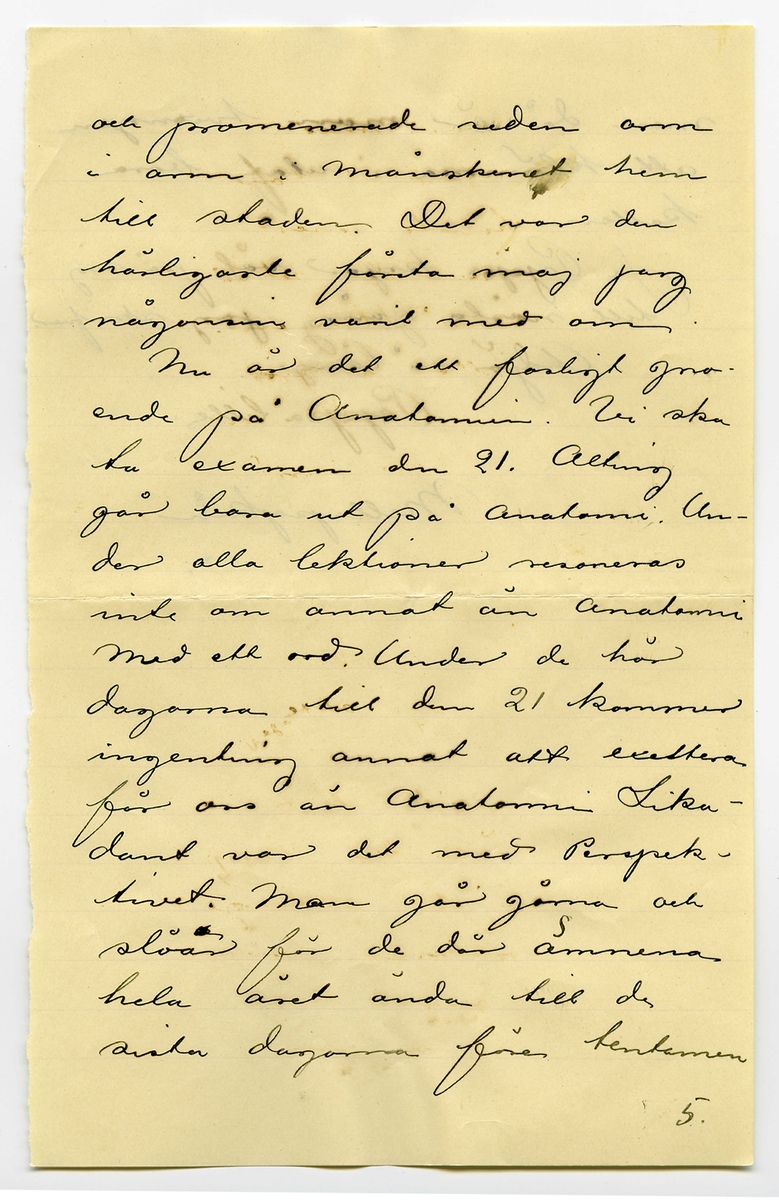 och promenerade sedan arm
i arm i månskenet hem
till staden. Det var den
härligaste första maj jag
någonsin varit med om.
Nu är det ett fasligt gno-
ende på Anatomin. Vi ska
ta examen den 21. Allting
går bara ut på anatomi. Un-
der alla lektioner resoneras
inte om annat än anatomi
med ett ord. Under de här
dagarna till den 21 kommer
ingenting annat att existera
för oss än Anatomi Lika-
dant var det med Perspek-
tivet. Man går gärna och
slöar för de där ämnena
hela året ända till de
sista dagarna före tentamen
5.